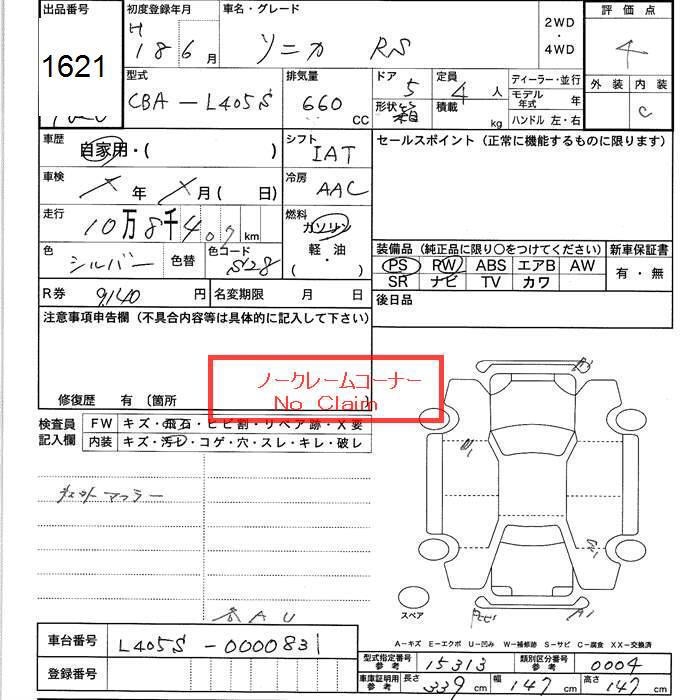 出品番号 初度登録年月 車名・グレード 2WD・4WD 評価点
1621 H 18 6月 ソニカ RS 4
型式 排気量 ドア 定員 ディーラー・並行 外装 内装
CBA-L405S 660 CC 5 4人 モデル年式 年 C
形状 箱 積載 kg ハンドル 左・右
車歴 自家用・( ) シフト IAT セールスポイント (正常に機能するものに限ります)
車検 年 月 ( 日) 冷房 AAC
走行 10万8千407km 燃料 ガソリン
軽・油
( )
色 シルバー 色替 色コード S28
装備品 (純正品に限り○をつけてください) 新車保証書
PS RW ABS エアB AW 有・無
SR ナビ TV カワ
R券 9140円 名変期限 月 日 後日品
注意事項申告欄 (不具合内容等は具体的に記入して下さい)
ノークレームコーナー
No Claim
修復歴 有 〔箇所
検査員記入欄 FW キズ・飛石・ヒビ割・リペア跡・X要
内装 キズ・汚レ・コゲ・穴・スレ・キレ・破レ
A1
スペア
A-キズ E-エクボ U-凹み W-補修跡 S-サビ C-腐食 XX-交換済
車台番号 L405S-0000831
登録番号
型式指定番号 参考 15313 類別区分番号 参考 0004
車庫証明用 参考 長さ 339cm 幅 147cm 高さ 147cm